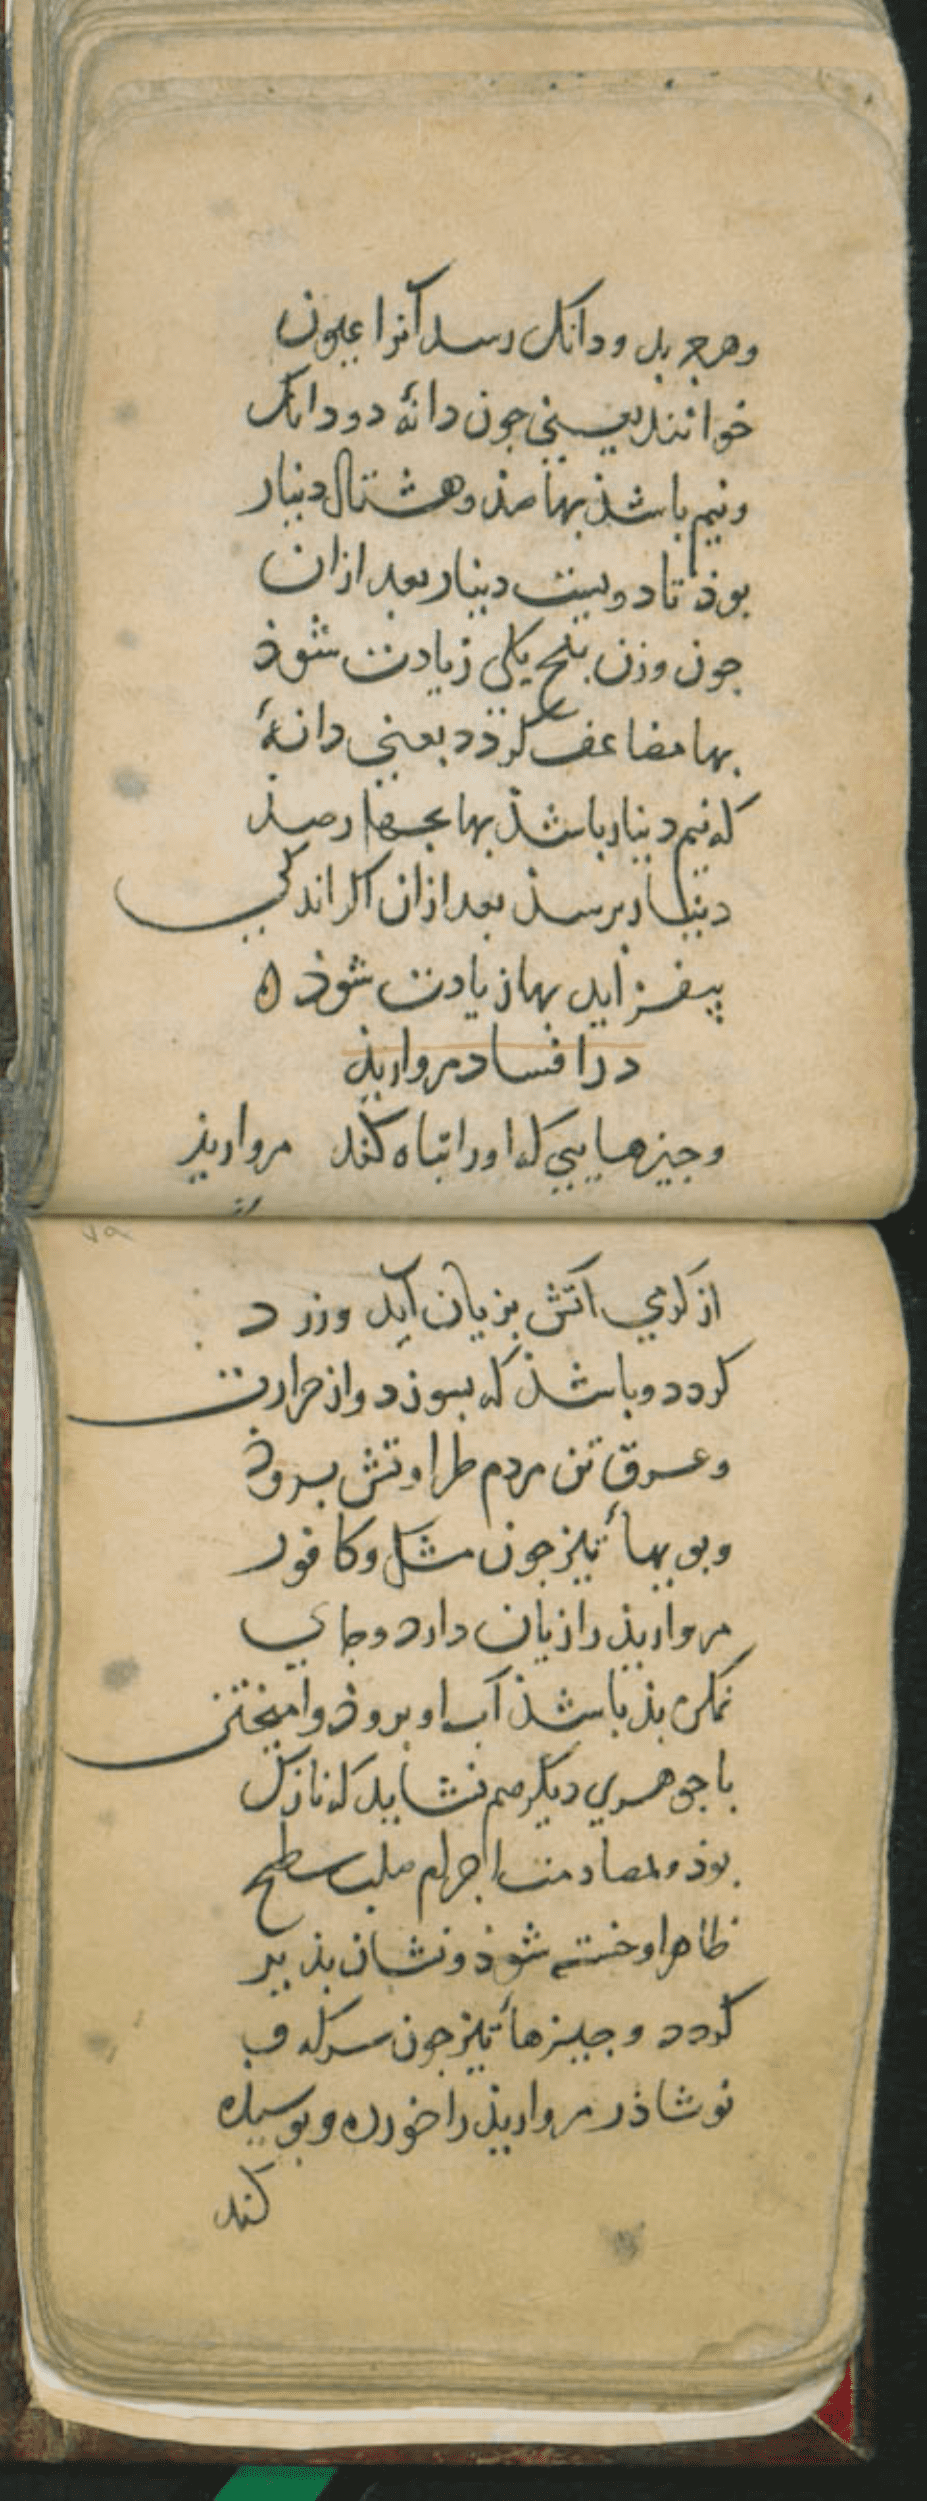 وهرچه بدو دانک رسد آنرا عیون
خوانند یعنی جون دانهٔ دو دانک
ونیم باشذ بها صذ وهشتاد دینار
بوذ تا دویست دینار بعد ازان
جون وزن بنج یکی زیادت شوذ
بها مضاعف کردد یعنی دانهٔ
که نیم دینار باشذ بها بجهارصذ
دینار برسذ بعد ازان اکر اندکی
بیفزاید بها زیادت شوذ ه
در افساد مرواریذ
وجیزهایی که اورا تباه کند مرواریذ
۷۹
از کرمی آتش بزیان آید وزرد
کردد وباشذ که بسوزد واز حرارت
وعرق تن مردم طراوتش بروذ
وبویهاء تیز جون مشک وکافور
مرواریذ را زیان دارد وجای
نمکن بذ باشذ آب او بروذ وآمیختن
با جوهری دیکر هم نشاید که نازک
بوذ وبمصادمت اجرام صلب سطح
ظاهر او خسته شوذ ونشان بذیر
کردد وجیزهاء تیز جون سرکه و
نوشاذر مرواریذ را خورده وبوسیده
کند